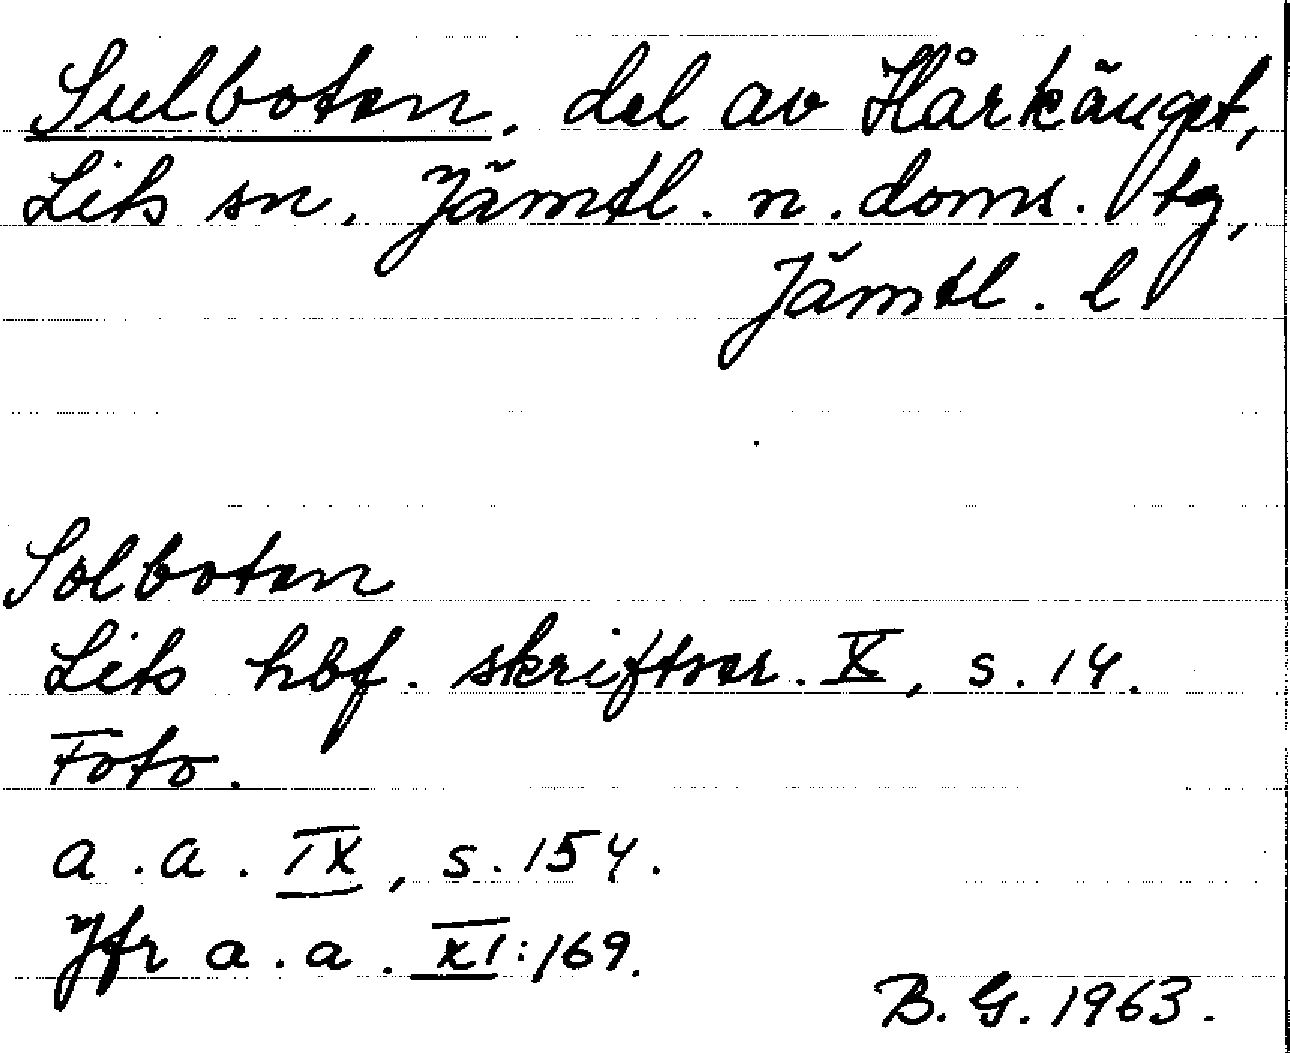 Sulboten, del av Hårkänget,
Lits sn. Jämtl. n. doms. tg,
Jämtl. l
Solboten
Lits hbf. skriftser. X, s. 14.
Foto.
a.a. IX, s. 154.
Jfr a.a. XI:169.
B.G. 1963.